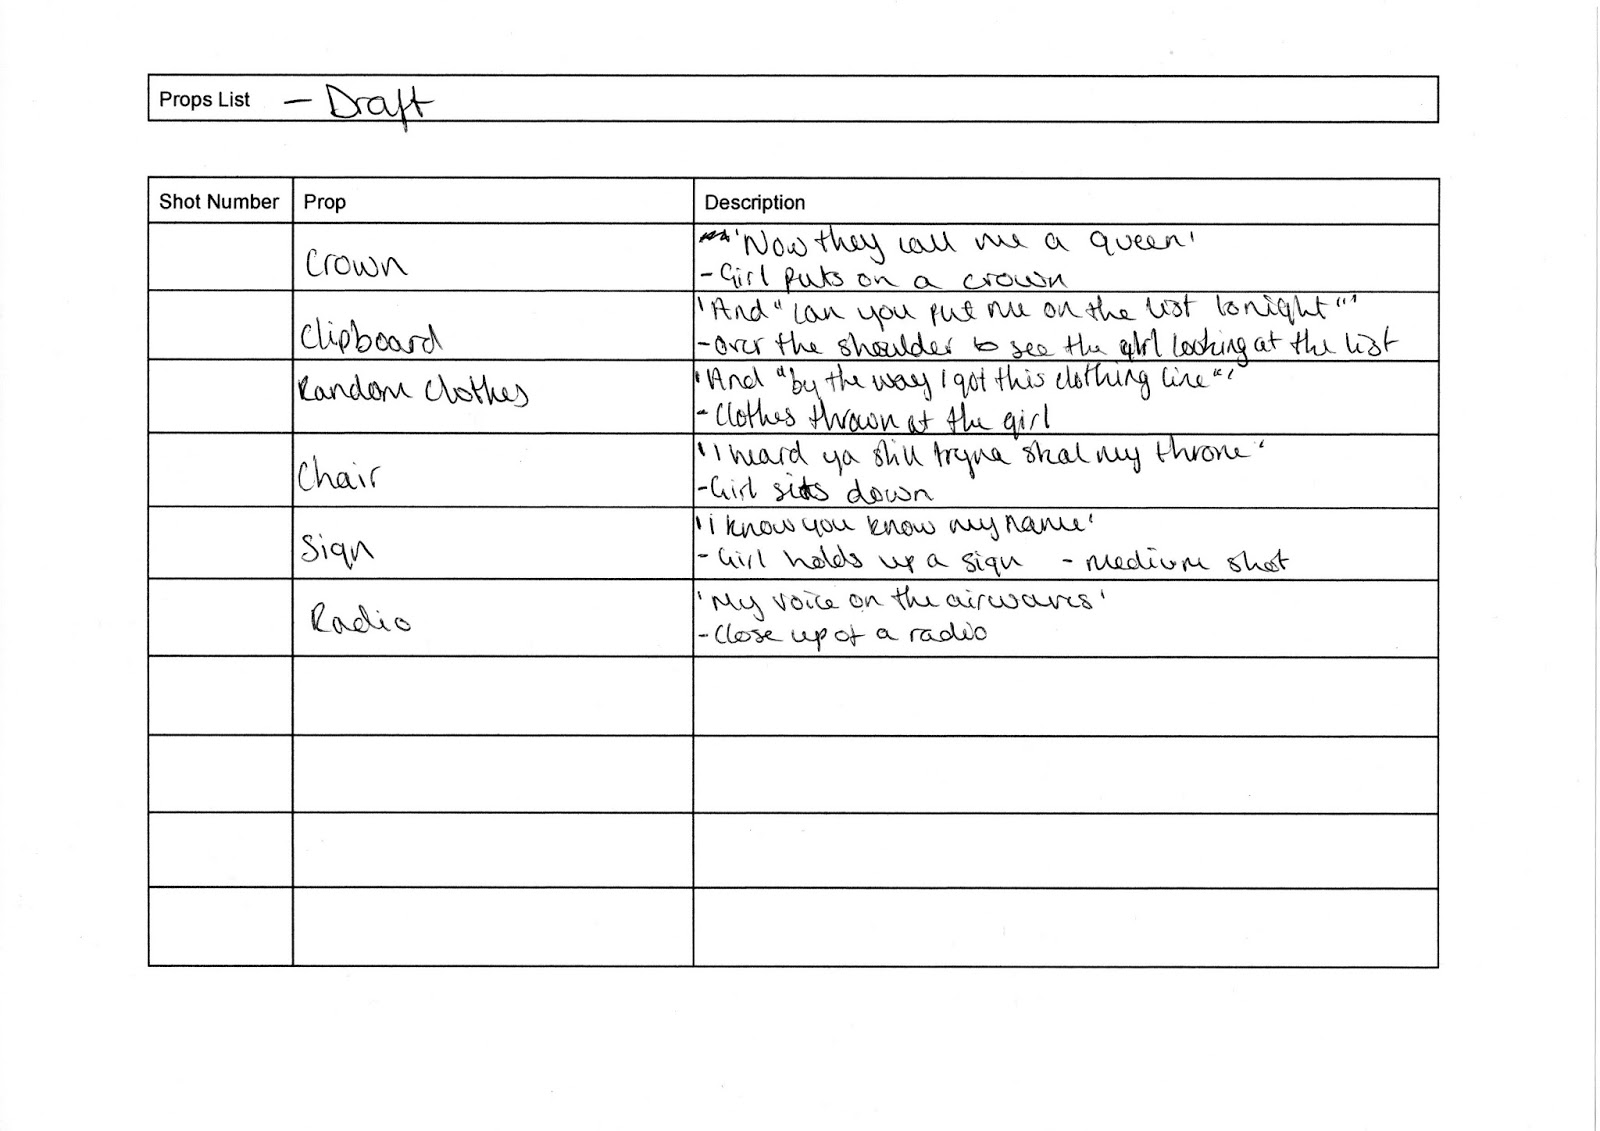 Props List - Draft
Shot Number Prop Description
Crown
'Now they call me a queen'
- Girl puts on a crown
Clipboard
'And "can you put me on the list tonight"'
- over the shoulder to see the girl looking at the list
Random Clothes
'And "by the way I got this clothing line"'
- Clothes thrown at the girl
Chair
'I heard ya still tryna steal my throne'
- Girl sits down
Sign
'i know you know my name'
- Girl holds up a sign - medium shot
Radio
'My voice on the airwaves'
- Close up of a radio